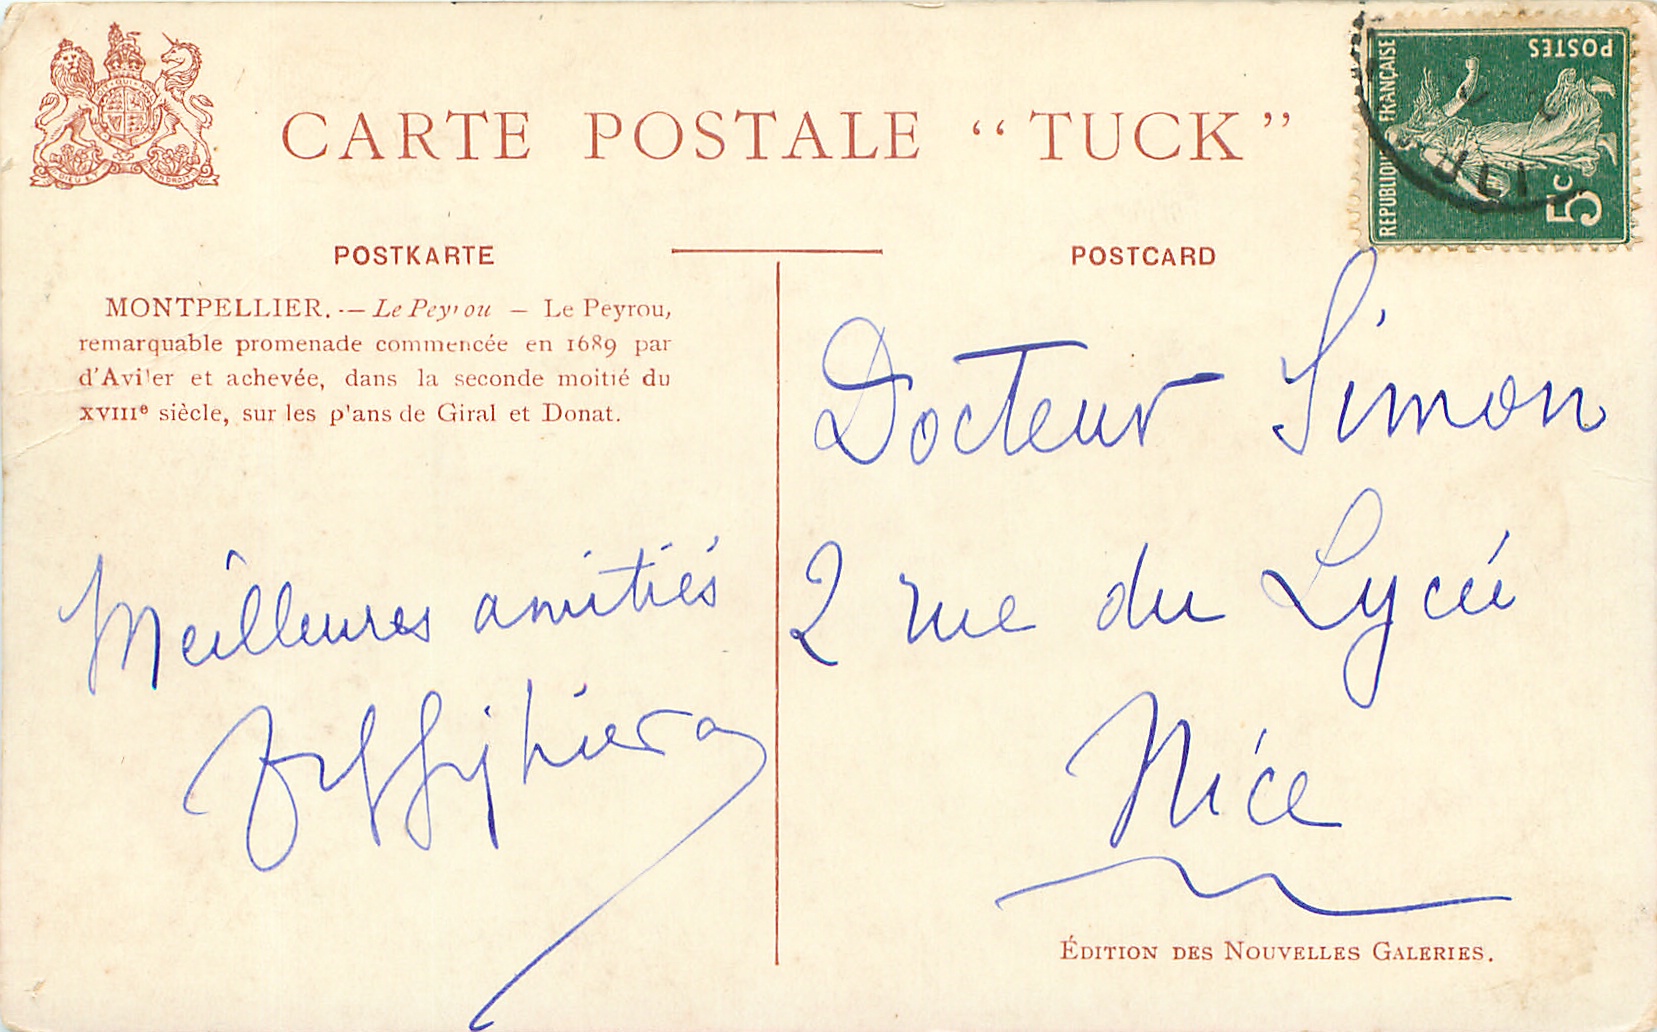 CARTE POSTALE “TUCK”
POSTKARTE
POSTCARD
MONTPELLIER. — Le Peyrou — Le Peyrou,
remarquable promenade commencée en 1689 par
d'Aviler et achevée, dans la seconde moitié du
XVIIIe siècle, sur les plans de Giral et Donat.
Meilleures amitiés
Docteur Simon
2 rue du Lycée
Nice
ÉDITION DES NOUVELLES GALERIES.
REPUBLIQUE FRANÇAISE
POSTES
5c